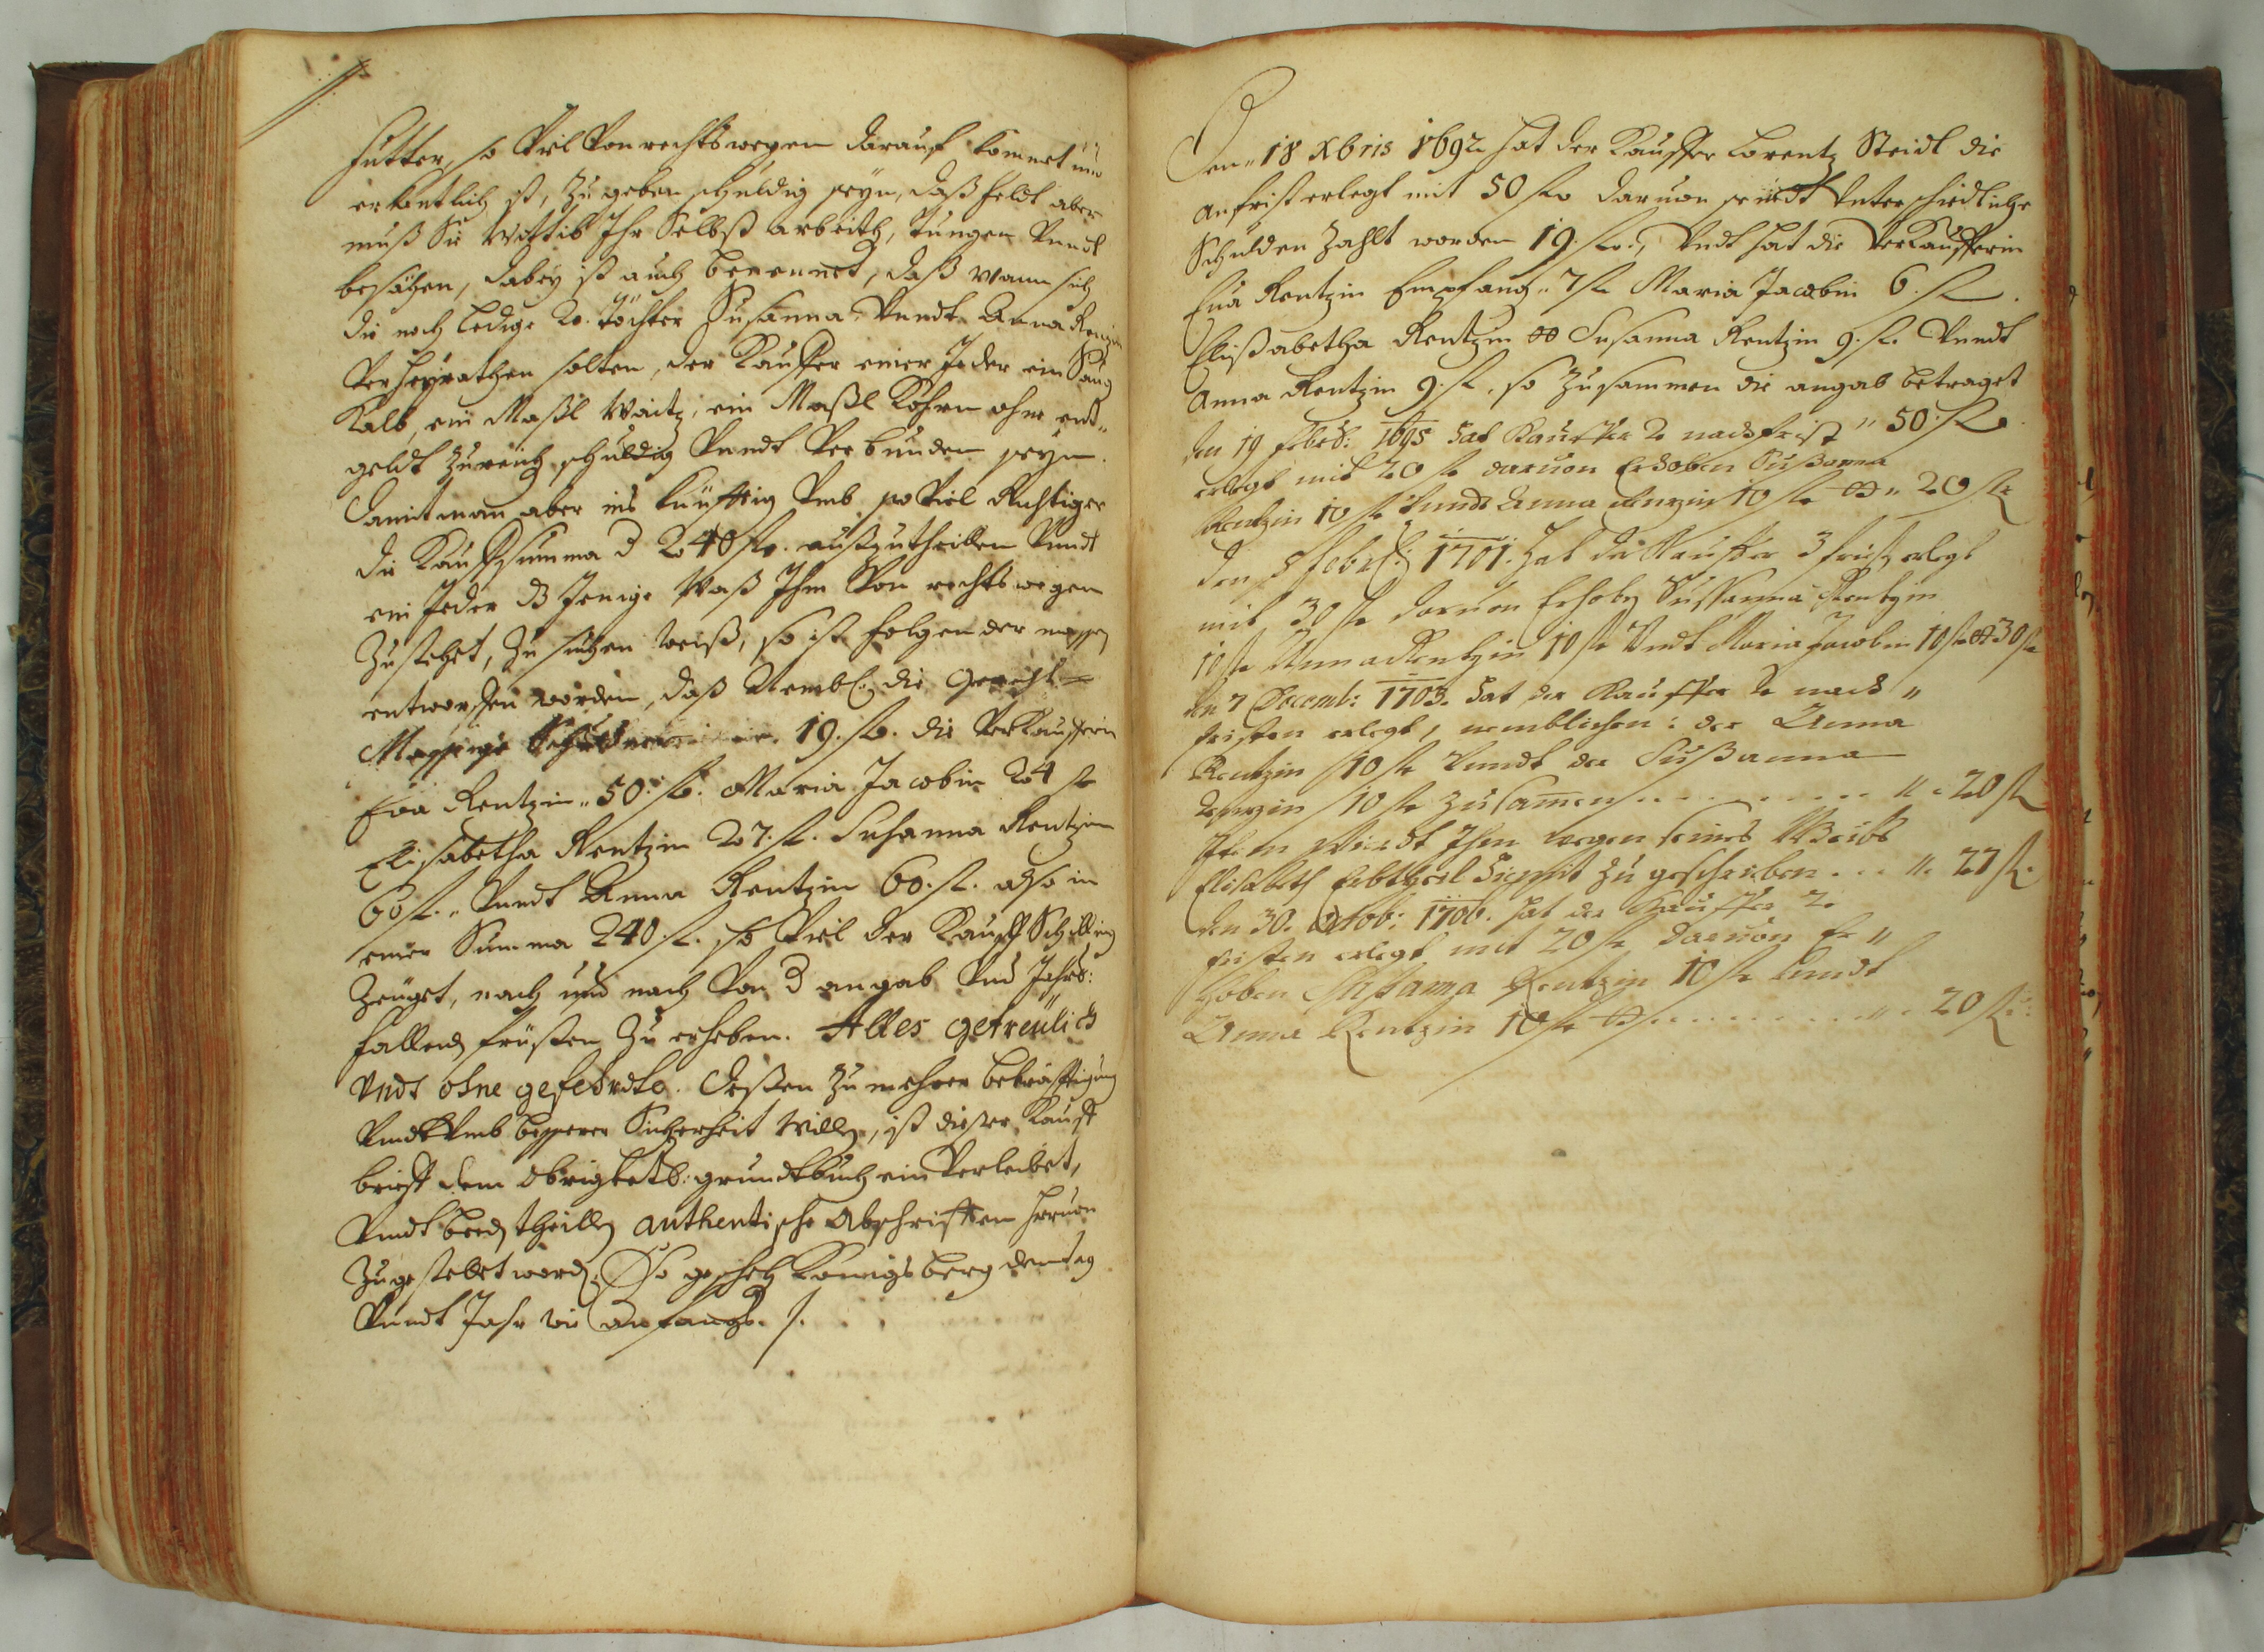 Futter, so Viel Von rechtswegen darauf kommet und
erkäntlich ist, Zu geben schuldig seyn, daß feldt aber
muß Sie Wittib Ihr Selbst arbeith, tungen Vundt
besähen, dabey ist auch benennet, daß wann sich
die noch ledige 2. töchter Susanna Vundt Anna Rentzin
Verheyrathen solten, der Kauffer einer Jeder ein Saug
Kalb, ein Maßl Waitz, ein Maßl Kohrn ohne ent„
geldt Zureich schuldig Vundt Verbunden seyn.
Damit man aber ins künfftig Vmb so Viel Richtiger
die Kauffsumma d 240 fl. außzutheillen Vundt
ein Jeder dz Jenige Waß Ihm Von rechtswegen
Zustehet, Zu suchen weiß, so ist folgender massen
entworffen worden, daß Nembl: die Gericht=
Messige 19. fl. die Verkauffern
Eva Rentzin „ 50. fl. Maria Jacobin 24 fl
Elisabetha Rentzin 27. fl. Susanna Rentzin
60 fl. „ Vundt Anna Rentzin 60. fl. also in
einer Summa 240. fl. so Viel der Kauff Schilling
Zeüget, nach und nach Von d angab Vnd Jährl:
fallend früsten Zu erheben. Alles getreülich
Vndt ohne gefehrdte. Deßen Zu mehrer bekräfftigung
Vndt Vmb besserer Sicherheit Willen, ist dieser Kauff
brieff dem Obrigkeitl: grundtbuch ein Verleibet,
Vundt beed theillen authentische Abschrifften hiervon
Zugestelt word. So geschehen Königsberg den tag
Vundt Jahr wie anfangs. /.
Den „ 18 Xbris 1692 hat der Kauffer Lorentz Steidl die
Anfrist erlegt mit 50 fl. daruon seindt Vnterschiedliche
Schulden Zahlt worden 19. fl., Vndt hat die Verkaufferin
Eua Rentzin Empfang „ 7 fl. Maria Jacobin 6. fl.
Elißabetha Rentzin Susanna Rentzin 9. fl. Vundt
Anna Rentzin 9. fl. so Zusammen die angab betraget
„ 50. fl.
den 19 Febr: 1695 hat Kauffer 2 nachfrist
erlegt mit 20 fl daruon Erhoben Sußanna
Rentzin 10 fl Vundt Anna Rentzin 10 fl „ 20 fl
den 8 Febr: 1701. hat der Kauffer 3 frist erlegt
mit 30 fl daruon Erhoben Sussanna Rentzin
10 fl Anna Rentzin 10 fl Vndt Maria Jacobin 10 fl 30 fl
den 7 Decemb: 1703. hat der Kauffer 2 nach „
fristen erlegt, nemblichen: der Anna
Rentzin 10 fl Vundt der Sußanna
Rentzin 10 fl Zusamen . . . . . „ 20 fl
Item wierdt Ihm wegen seines Weibs
Elisabeth Erbtheil hiemit Zu geschrieben . . . „ 27 fl.
den 30. Octob: 1706. hat der Kauffer 2
fristen erlegt mit 20 fl, daruon Er „
hoben Sussanna Rentzin 10 fl Vundt
Anna Rentzin 10 fl . . . . . . „ 20 fl: